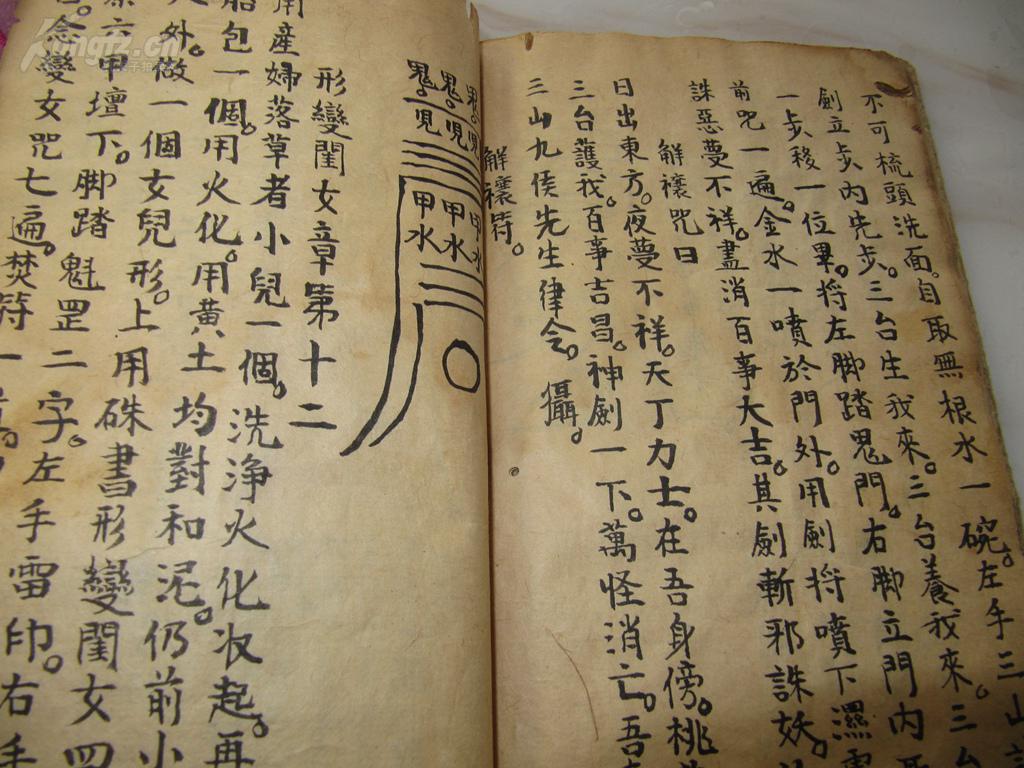 不可梳頭洗面。自取無根水一碗。左手三山
劍立步內先步。三台生我來。三台養我來。三台
一步移一位畢。将左脚踏鬼門。右脚立門內
前咒一遍。金水一噴於門外。用劍将噴下濕
誅惡夢不祥。盡消百事大吉。其劍斬邪誅妖。
解禳咒曰
日出東方。夜夢不祥。天丁力士。在吾身傍。桃
三台護我。百事吉昌。神劍一下。萬怪消亡。吾
三山九侯先生律令。攝。
解禳符。
鬼 鬼 鬼
児 児 児
甲 甲 甲
水 水 水
形變閨女章第十二
用產婦落草者小兒一個。洗净火化收起。再
胎包一個。用火化。用黄土均對和泥。仍前小
外。做一個女兒形。上用硃書形變閨女四
六甲壇下。脚踏魁罡二字。左手雷印。右手
念變女咒七遍。焚符一
kongfz.cn